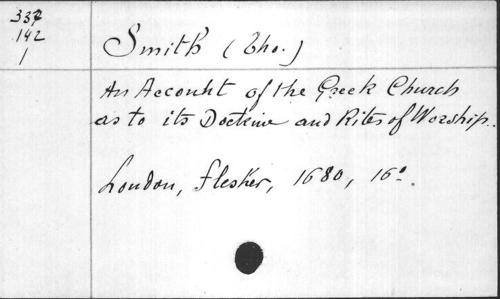 337
142
1
Smith (Tho.)
An Account of the Greek Church
as to its Doctrine and Rites of Worship.
London, Flesher, 1680, 16°.